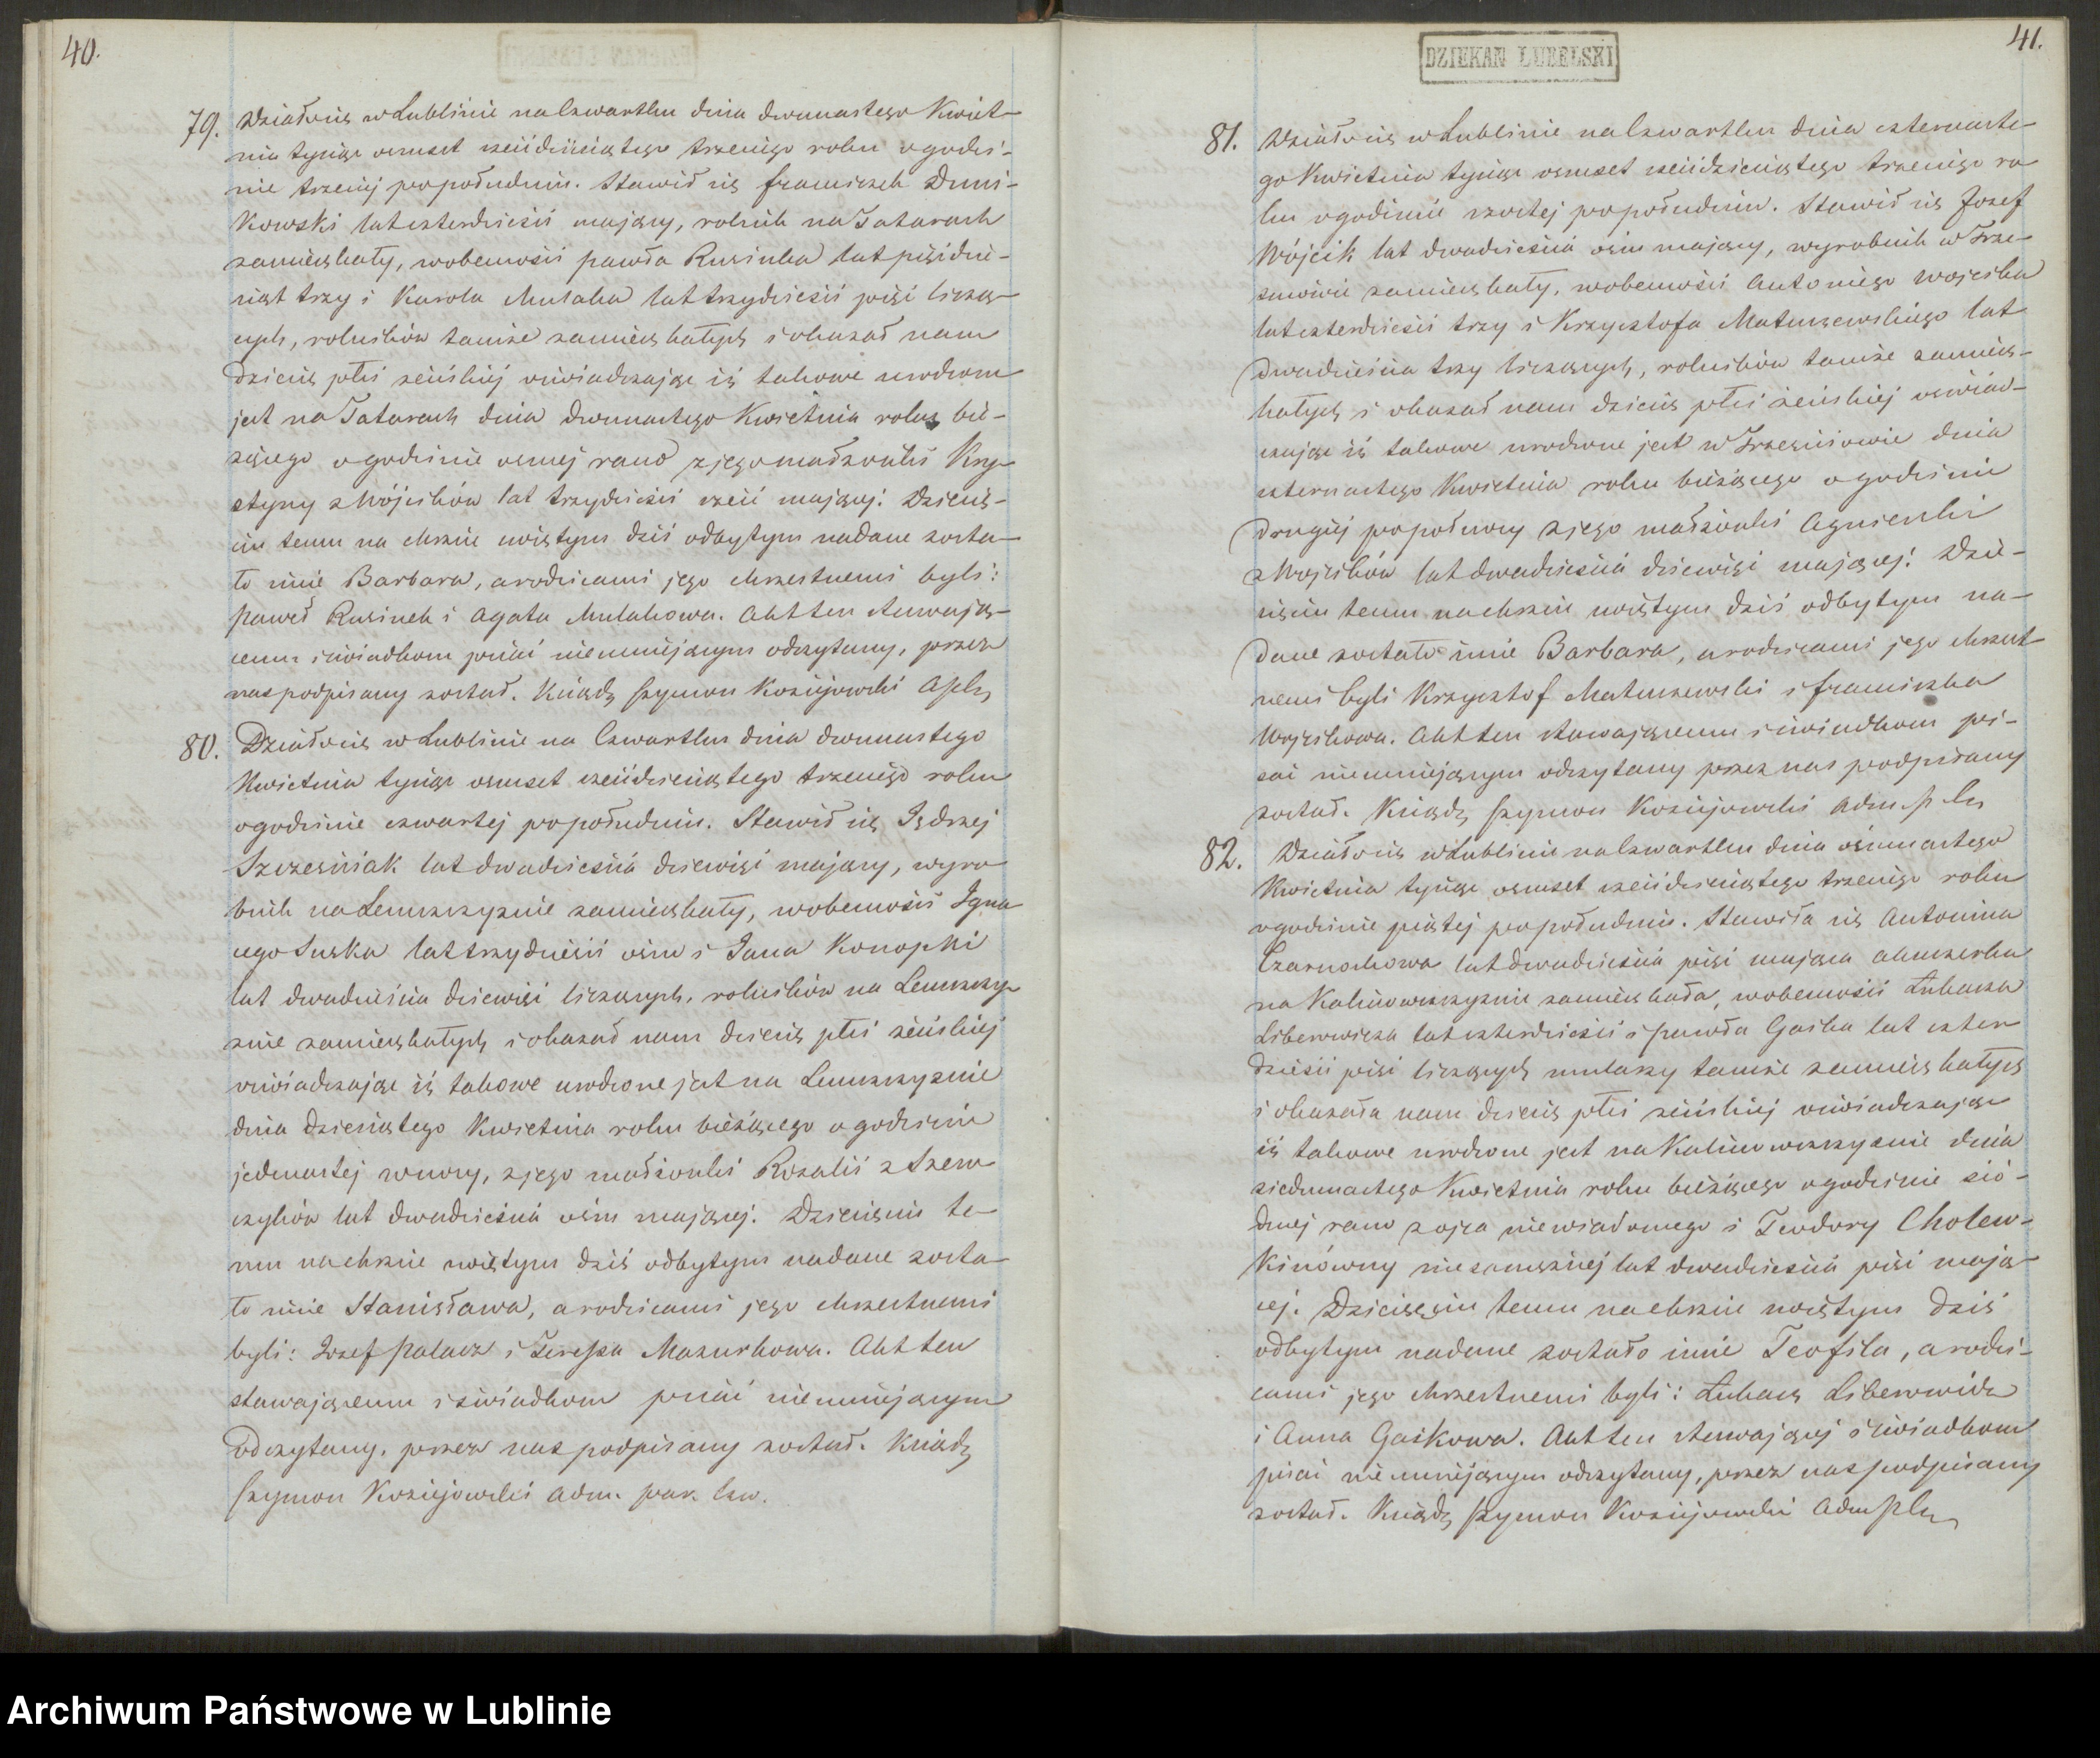 40.
79. Działo się w Lublinie na Czwartku dnia dwunastego Kwiet-
nia tysiąc ośmset sześćdziesiątego trzeciego roku o godzi-
nie trzeciej popołudniu. Stawił się Franciszek Duni-
kowski lat czterdzieści mający, rolnik na Tatarach
zamieszkały, wobecności Pawła Rusinka lat pięćdzie-
siąt trzy i Karola Mulaka lat trzydzieści pięć liczą-
cych, rolników tamże zamieszkałych i okazał nam
dziecię płci żeńskiej oświadczając iż takowe urodzone
jest na Tatarach dnia dwunastego Kwietnia roku bie-
żącego o godzinie osmej rano z jego małżonki Kry-
styny z Wójcików lat trzydzieści sześć mającej. Dziecię-
ciu temu na chrzcie świętym dziś odbytym nadane zosta-
ło imie Barbara, a rodzicami jego chrzestnemi byli:
Paweł Rusinek i Agata Mulakowa. Akt ten stawają-
cemu i świadkom pisać nieumiejącym odczytany, przez
nas podpisany został. Ksiądz Szymon Koziejowski
80. Działo się w Lublinie na Czwartku dnia dwunastego
Kwietnia tysiąc ośmset sześćdziesiątego trzeciego roku
o godzinie czwartej popołudniu. Stawił się Jędrzej
Szczesniak lat dwadzieścia dziewięć mający, wyro-
bnik na Lemszczyznie zamieszkały, wobecności Igna-
cego Suska lat trzydzieści ośm i Jana Konopki
lat dwadzieścia dziewięć liczących, rolników na Lemszczy-
znie zamieszkałych i okazał nam dziecię płci żeńskiej
oświadczając iż takowe urodzone jest na Lemszczyznie
dnia dziesiątego Kwietnia roku bieżącego o godzinie
jedenastej wnocy, z jego małżonki Rozalii z Szew-
czyków lat dwadzieścia ośm mającej. Dziecięciu te-
mu na chrzcie świętym dziś odbytym nadane zosta-
ło imie Stanisława, a rodzicami jego chrzestnemi
byli: Józef Pałacz i Teressa Mazurkowa. Akt ten
stawającemu i świadkom pisać nieumiejącym
odczytany, przez nas podpisany został. Ksiądz
Szymon Koziejowski Adm. par. Czw.
DZIEKAN LUBELSKI
41.
81. Działo się w Lublinie na Czwartku dnia czternaste-
go Kwietnia tysiąc ośmset sześćdziesiątego trzeciego ro-
ku o godzinie szóstej popołudniu. Stawił się Józef
Wójcik lat dwadzieścia ośm mający, wyrobnik w Trze-
śniowie zamieszkały, wobecności Antoniego Wojcika
lat czterdzieści trzy i Krzysztofa Matuszewskiego lat
dwadzieścia trzy liczących, rolników tamże zamiesz-
kałych i okazał nam dziecię płci żeńskiej oświad-
czając iż takowe urodzone jest w Trześniowie dnia
czternastego Kwietnia roku bieżącego o godzinie
drugiej popołnocy z jego małżonki Agnieszki
z Wojcików lat dwadzieścia dziewięć mającej. Dzie-
cięciu temu na chrzcie świętym dziś odbytym na-
dane zostało imie Barbara, a rodzicami jego chrzest-
nemi byli Krzysztof Matuszewski i Franciszka
Wojcikowa. Akt ten stawającemu i świadkom pi-
sać nieumiejącym odczytany przez nas podpisany
został. Ksiądz Szymon Koziejowski Adm.
82. Działo się w Lublinie na Czwartku dnia ośmnastego
Kwietnia tysiąc ośmset sześćdziesiątego trzeciego roku
o godzinie piątej popołudniu. Stawiła się Antonina
Czarnockowa lat dwadzieścia pięć mająca akuszerka
na Kalinowszczyznie zamieszkała, wobecności Łukasza
Liberowicza lat czterdzieści i Pawła Gaska lat czter-
dzieści pięć liczących mularzy tamże zamieszkałych
i okazała nam dziecię płci żeńskiej oświadczając
iż takowe urodzone jest na Kalinowszczyznie dnia
siedmnastego Kwietnia roku bieżącego o godzinie sió-
dmej rano z ojca niewiadomego i Teodory Cholew-
kinówny niezamężnej lat dwadzieścia pięć mają-
cej. Dziecięciu temu na chrzcie świętym dziś
odbytym nadane zostało imie Teofila, a rodzi-
cami jego chrzestnemi byli: Łukasz Liberowicz
i Anna Gaskowa. Akt ten stawającej i świadkom
pisać nieumiejącym odczytany, przez nas podpisany
został. Ksiądz Szymon Koziejowski Adm
Archiwum Państwowe w Lublinie